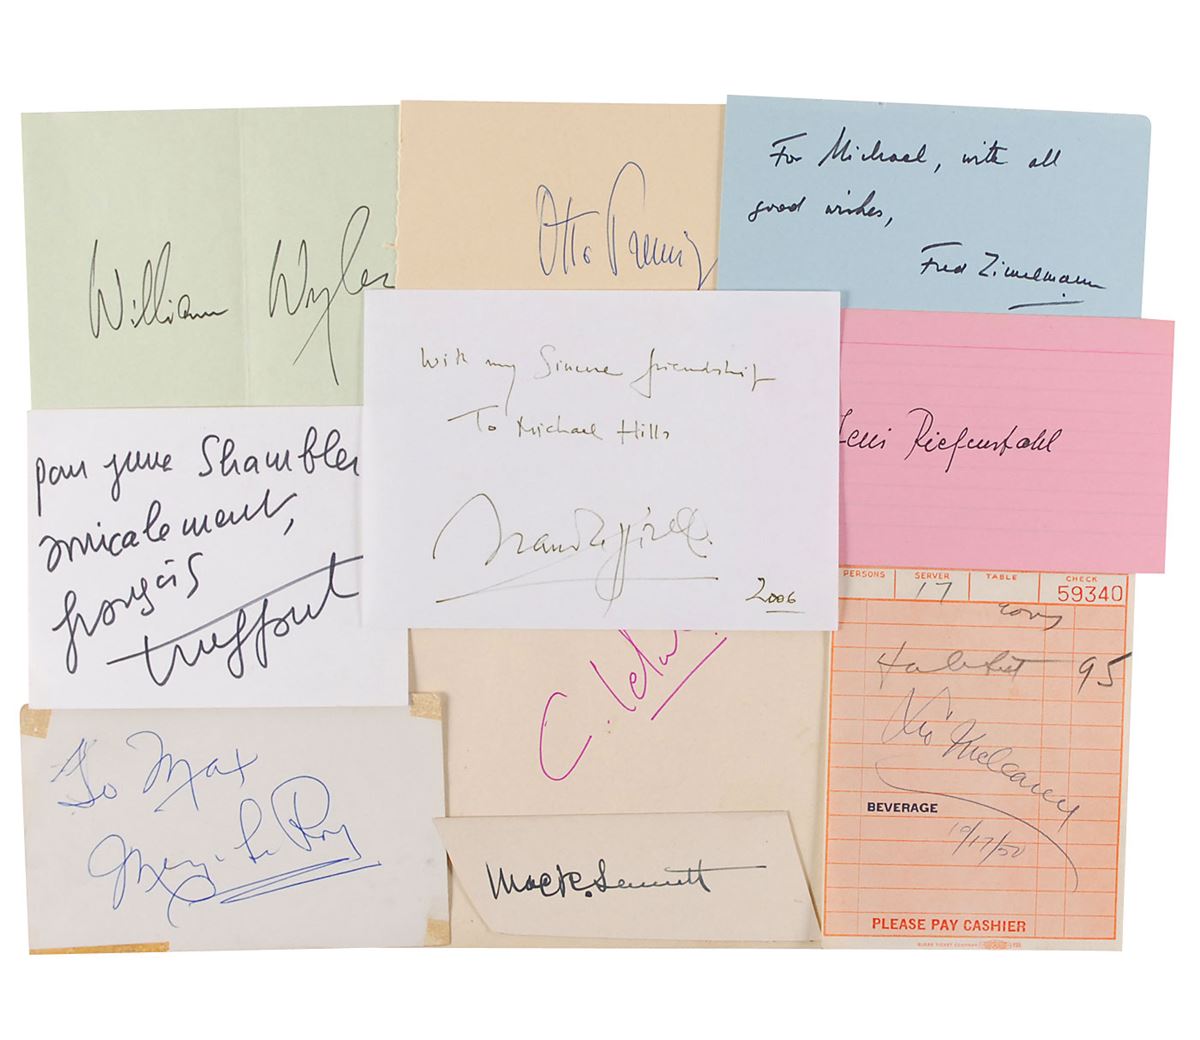 William Wyler
Otto Preminger
For Michael, with all
good wishes,
Fred Zinnemann
With my Sincere friendship
To Michael Hills
Franco Zeffirelli
2006
Leni Riefenstahl
pour June Shambler
amicalement,
françois
truffaut
PERSONS SERVER TABLE CHECK
17 59340
Halibut 95
Leo McCarey
BEVERAGE
10/17/50
PLEASE PAY CASHIER
To Max
Mervyn Le Roy
C. Lelouch
Mack Sennett